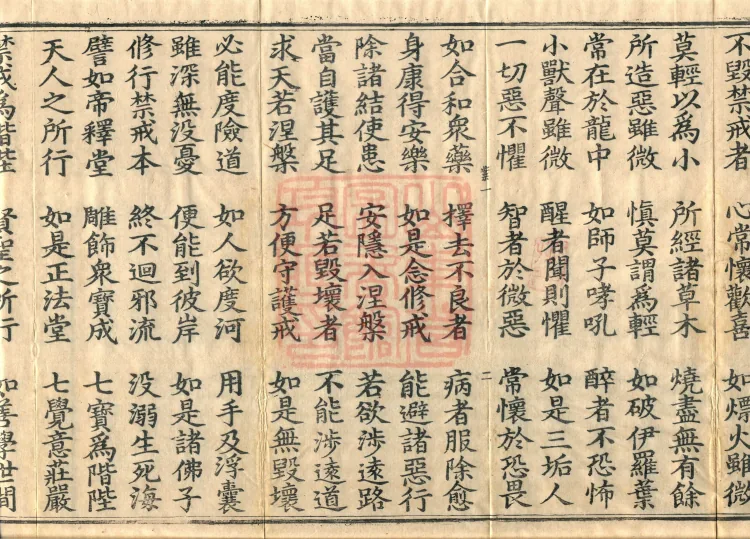 不毀禁戒者　心常懷歡喜　如火雖微
莫輕以爲小　所經諸草木　燒盡無有餘
所造惡雖微　愼莫謂爲輕　如破伊羅葉
常在於龍中　如師子哮吼　醉者不恐怖
小獸聲雖微　醒者聞則懼　如是三垢人
一切惡不懼　智者於微惡　常懷於恐畏
二
如合和衆藥　擇去不良者　病者服除愈
身康得安樂　如是念修戒　能避諸惡行
除諸結使患　安隱入涅槃　若欲涉遠路
當自護其足　足若毀壞者　不能涉遠道
求天若涅槃　方便守護戒　如是無毀壞
必能度險道　如人欲度河　用手及浮囊
雖深無没憂　便能到彼岸　如是諸佛子
修行禁戒本　終不迴邪流　没溺生死海
譬如帝釋堂　雕飾衆寶成　七寶爲階陛
天人之所行　如是正法堂　七覺意莊嚴
禁戒爲階陛　賢聖之所行　如善學世間